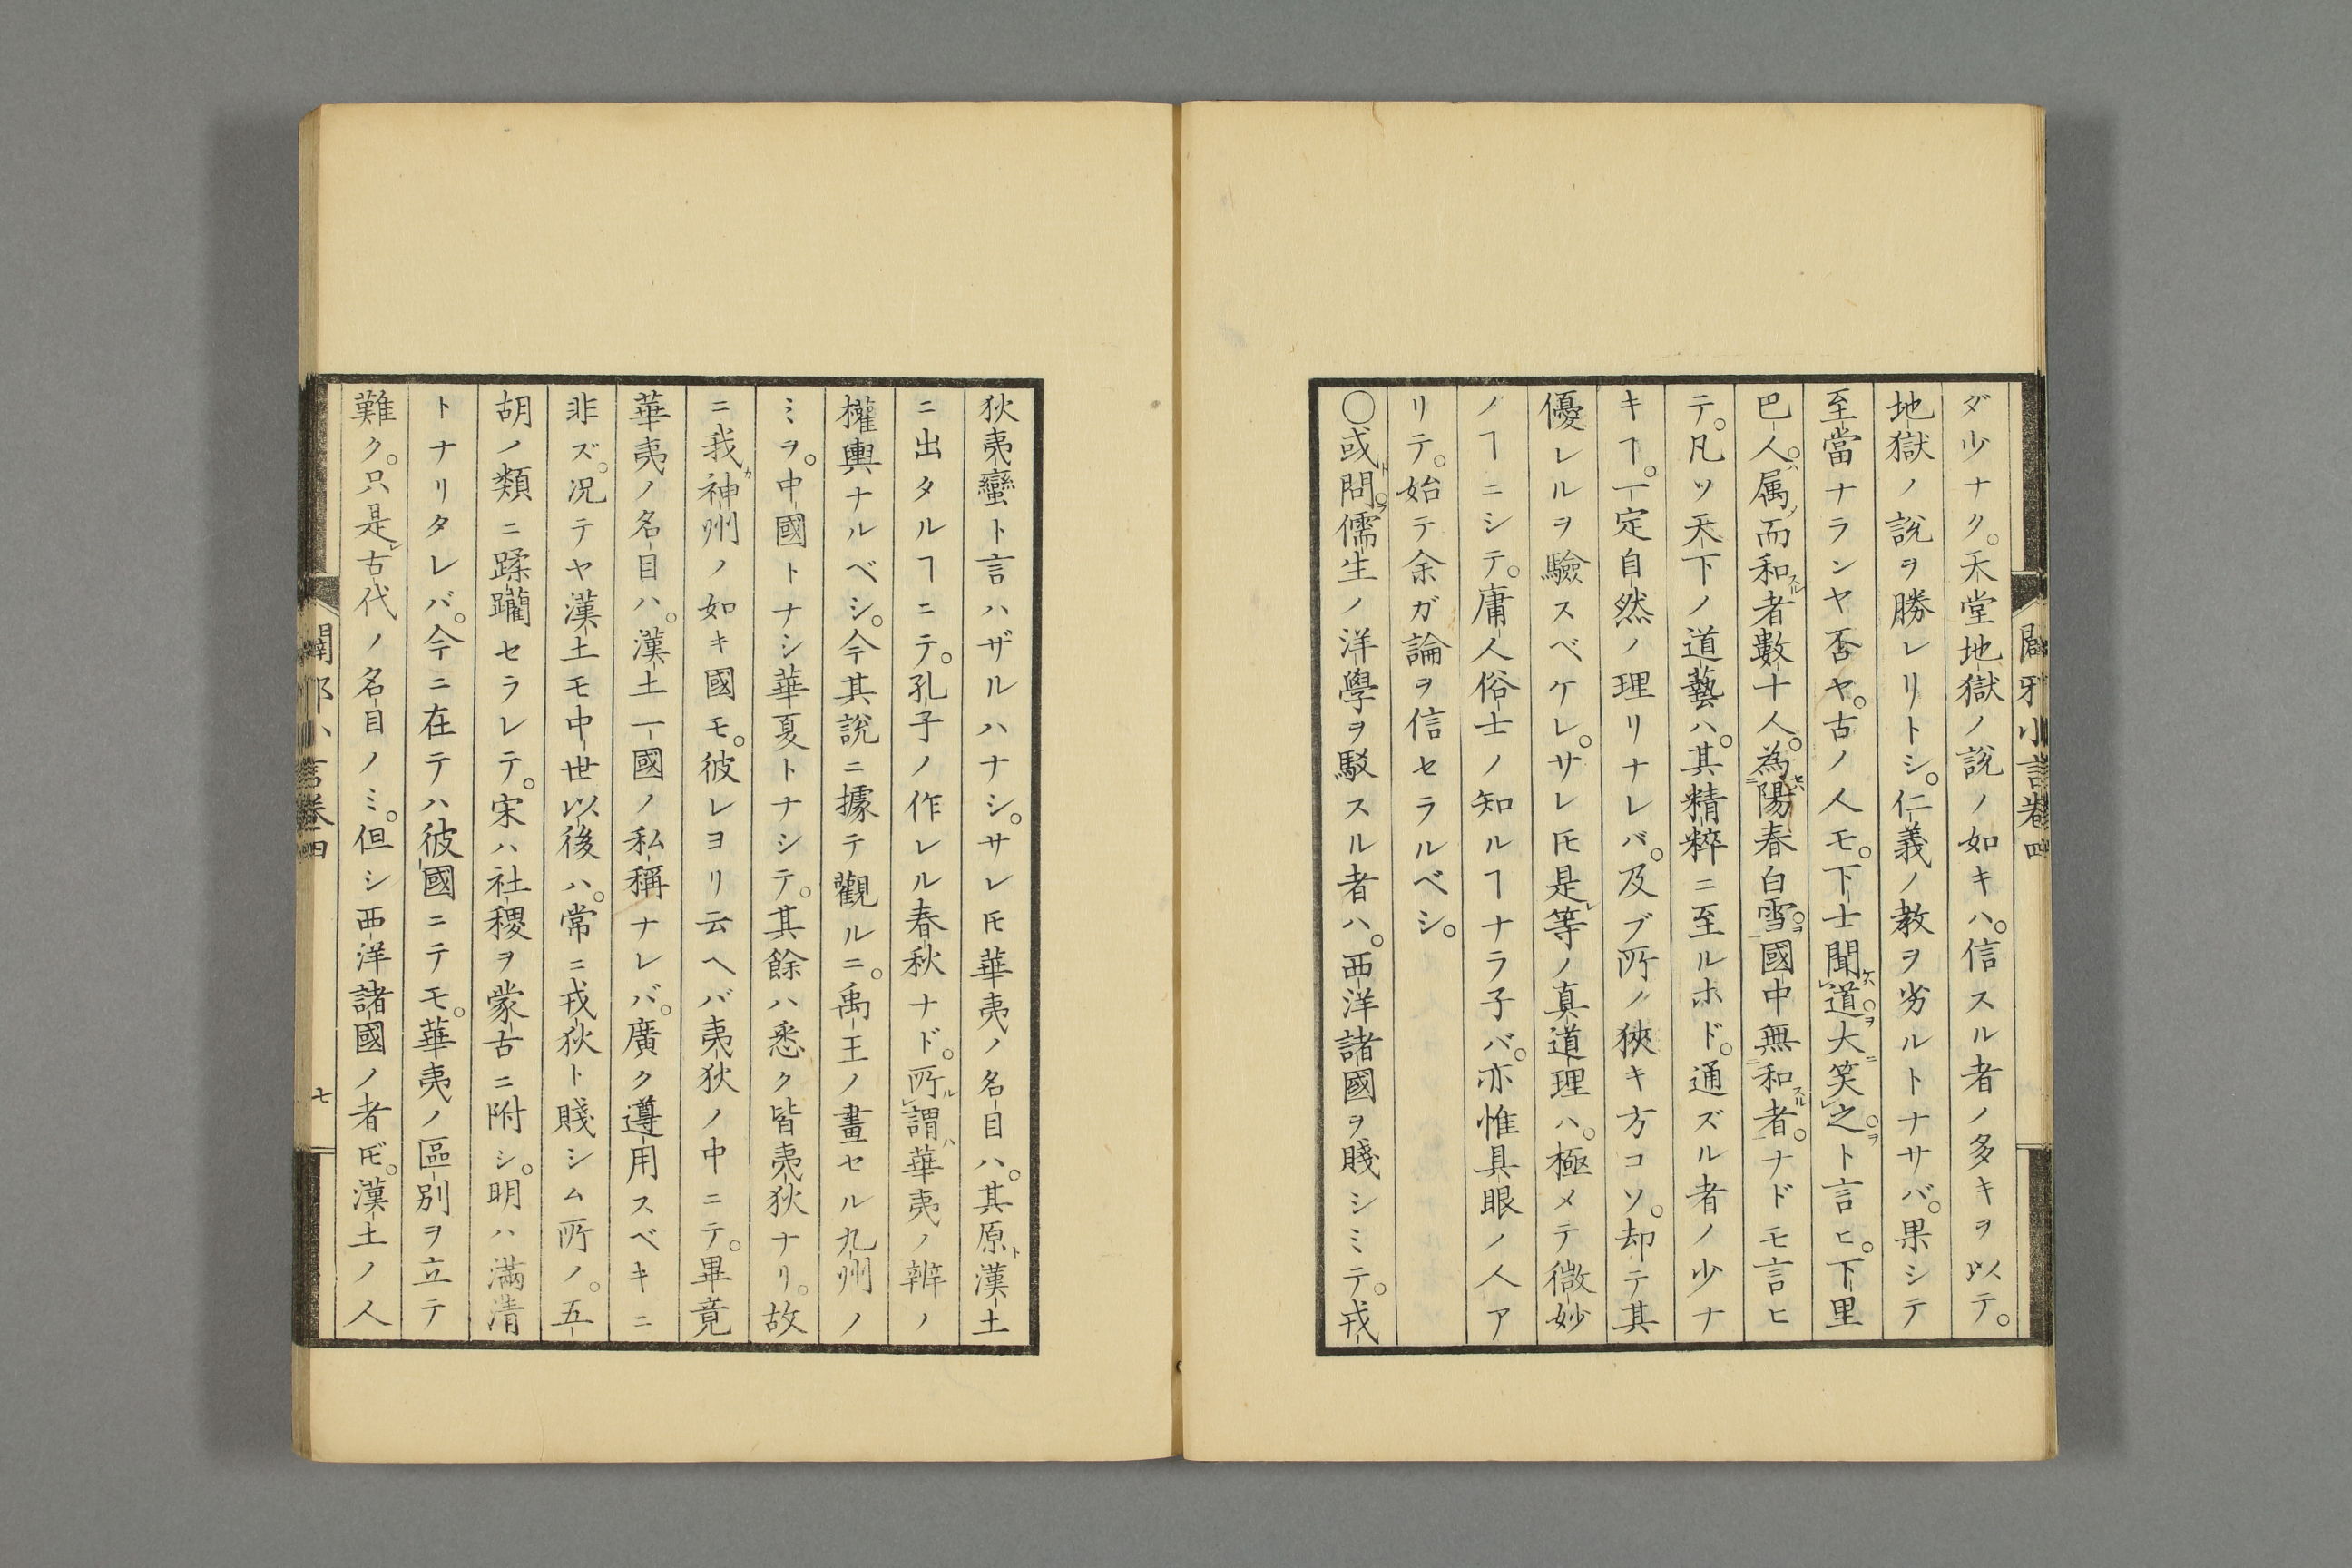 ダ少ナク。天堂地獄ノ說ノ如キハ。信スル者ノ多キヲ以テ。
地獄ノ說ヲ勝レリトシ。仁義ノ教ヲ劣ルトナサバ。果シテ
至當ナランヤ否ヤ。古ノ人モ。下士聞ケハ道ヲ。大ニ笑之ヲ。ト言ヒ。下里
巴人ハ。属ノ而和スル者數十人。為セハ陽春白雪ヲ。國中無和スル者。ナドモ言ヒ
テ。凡ソ天下ノ道藝ハ。其精粹ニ至ルホド。通ズル者ノ少ナ
キヿ。一定自然ノ理リナレバ。及ブ所ノ狹キ方コソ。却テ其
優レルヲ驗スベケレ。サレ𪜈是レ等ノ真道理ハ。極メテ微妙
ノヿニシテ。庸人俗士ノ知ルヿナラ子バ。亦惟具眼ノ人ア
リテ。始テ余ガ論ヲ信セラルベシ。
○或ト問ヲ。儒生ノ洋學ヲ駁スル者ハ。西洋諸國ヲ賤シミテ。戎
闢邪小言卷四
狄夷蠻ト言ハザルハナシ。サレ𪜈華夷ノ名目ハ。其原ト漢土
ニ出タルヿニテ。孔子ノ作レル春秋ナド。所ル謂ハ華夷ノ辨ノ
權輿ナルベシ。今其說ニ據テ觀ルニ。禹王ノ畫セル九州ノ
ミヲ。中國トナシ華夏トナシテ。其餘ハ悉ク皆夷狄ナリ。故
ニ我カ神州ノ如キ國モ。彼レヨリ云ヘバ夷狄ノ中ニテ。畢竟
華夷ノ名目ハ。漢土一國ノ私稱ナレバ。廣ク遵用スベキニ
非ズ。况テヤ漢土モ中世以後ハ。常ニ戎狄ト賤シム所ノ。五
胡ノ類ニ蹂躪セラレテ。宋ハ社稷ヲ蒙古ニ附シ。明ハ滿清
トナリタレバ。今ニ在テハ彼國ニテモ。華夷ノ區別ヲ立テ
難ク。只是レ古代ノ名目ノミ。但シ西洋諸國ノ者𪜈。漢土ノ人
闢邪小言卷四
七